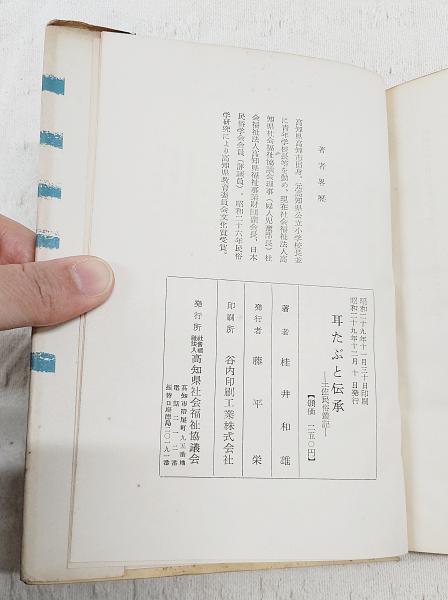 著者略歴
高知県高知市出身、元高知県公立小学校長並
に青年学校長等を勤め、現在社会福祉法人高
知県社会福祉協議会理事（婦人児童部長）社
会福祉法人高知県福祉事業財団副会長、日本
民俗学会会員（評議員）、昭和二十六年民俗
学研究により高知県教育委員会文化賞受賞。
昭和二十九年十一月三十日印刷
昭和二十九年十二月十日発行
耳たぶと伝承
―土佐民俗叢記―
【頒価 二五〇円】
著者 桂井和雄
発行者 藤平栄
印刷所 谷内印刷工業株式会社
発行所 社会福祉法人 高知県社会福祉協議会
高知市帯屋町九五番地
電話二一一二番
振替口座徳島二〇一九一番